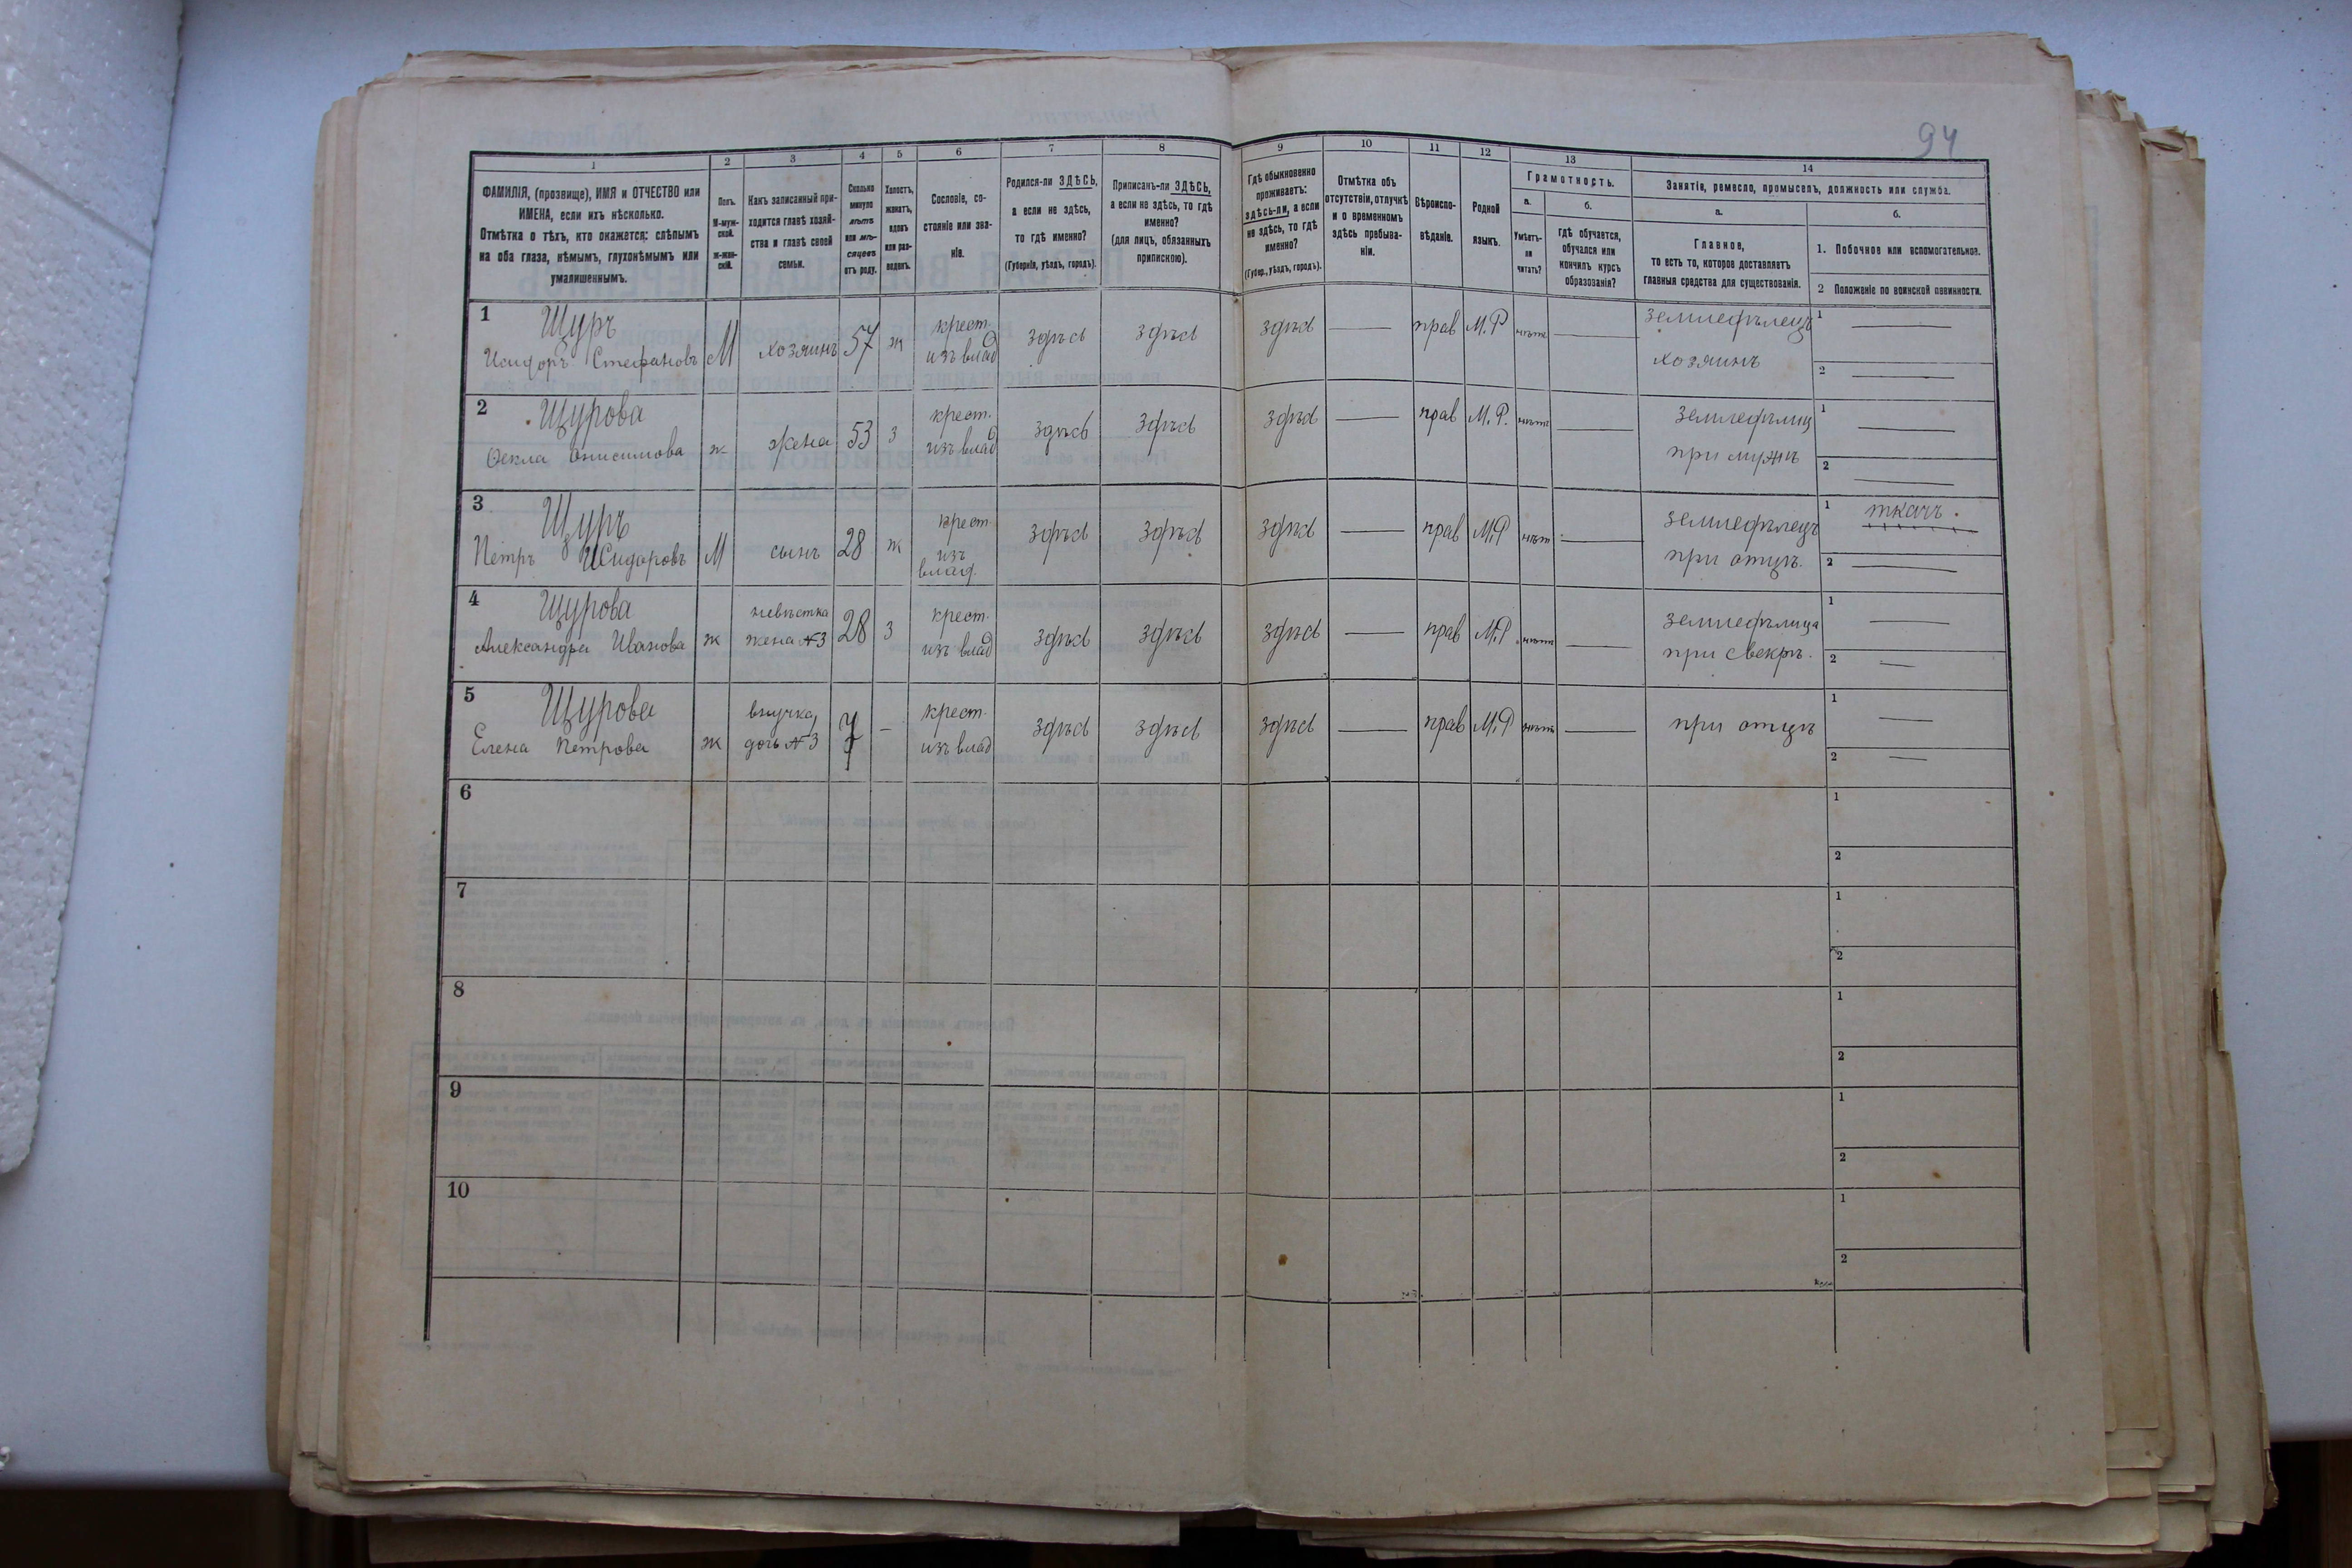 94
1 2 3 4 5 6 7 8 9 10 11 12 13 14
ФАМИЛІЯ, (прозвище), ИМЯ и ОТЧЕСТВО или
ИМЕНА, если ихъ нѣсколько.
Отмѣтка о тѣхъ, кто окажется: слѣпымъ
на оба глаза, нѣмымъ, глухонѣмымъ или
умалишеннымъ.
Полъ.
М-муж-
ской.
Ж-жен-
скій.
Какъ записанный при-
ходится главѣ хозяй-
ства и главѣ своей
семьи.
Сколько
минуло
лѣтъ
или мѣ-
сяцевъ
отъ роду.
Холостъ,
женатъ,
вдовъ
или раз-
веденъ.
Сословіе, со-
стояніе или зва-
ніе.
Родился-ли ЗДѢСЬ,
а если не здѣсь,
то гдѣ именно?
(Губернія, уѣздъ, городъ).
Приписанъ-ли ЗДѢСЬ,
а если не здѣсь, то гдѣ
именно?
(для лицъ, обязанныхъ
припискою).
Гдѣ обыкновенно
проживаетъ:
здѣсь-ли, а если
не здѣсь, то гдѣ
именно?
(Губер., уѣздъ, городъ).
Отмѣтка объ
отсутствіи, отлучкѣ
и о временномъ
здѣсь пребыва-
ніи.
Вѣроиспо-
вѣданіе.
Родной
языкъ.
Грамотность.
а.
Умѣетъ-
ли
читать?
б.
гдѣ обучается,
обучался или
кончилъ курсъ
образованія?
Занятіе, ремесло, промыселъ, должность или служба.
а.
Главное,
то есть то, которое доставляетъ
главныя средства для существованія.
б.
1. Побочное или вспомогательное.
2 Положеніе по воинской повинности.
1 Щуръ крест. земледѣлецъ 1
Исидоръ Стефановъ М хозяинъ 57 ж изъ влад здѣсь здѣсь здѣсь прав М.Р нѣтъ хозяинъ 2
2 Щурова крест. земледѣлица 1
Ѳекла Онисимова ж жена 53 з изъ влад здѣсь здѣсь здѣсь прав М.Р. нѣтъ при мужѣ 2
3 Щуръ крест земледѣлецъ 1 ткачъ.
Петръ Исидоровъ М сынъ 28 ж изъ здѣсь здѣсь здѣсь прав М.Р нѣтъ при отцѣ. 2
влад.
4 Щурова невѣстка крест. земледѣлица 1
Александра Иванова ж жена №3 28 з изъ влад здѣсь здѣсь здѣсь прав М.Р нѣтъ при свекрѣ. 2
5 Щурова внучка, крест. 1
Елена Петрова ж дочь №3 7 изъ влад здѣсь здѣсь здѣсь прав М.Р нѣтъ при отцѣ 2
6 1
2
7 1
2
8 1
2
9 1
2
10 1
2